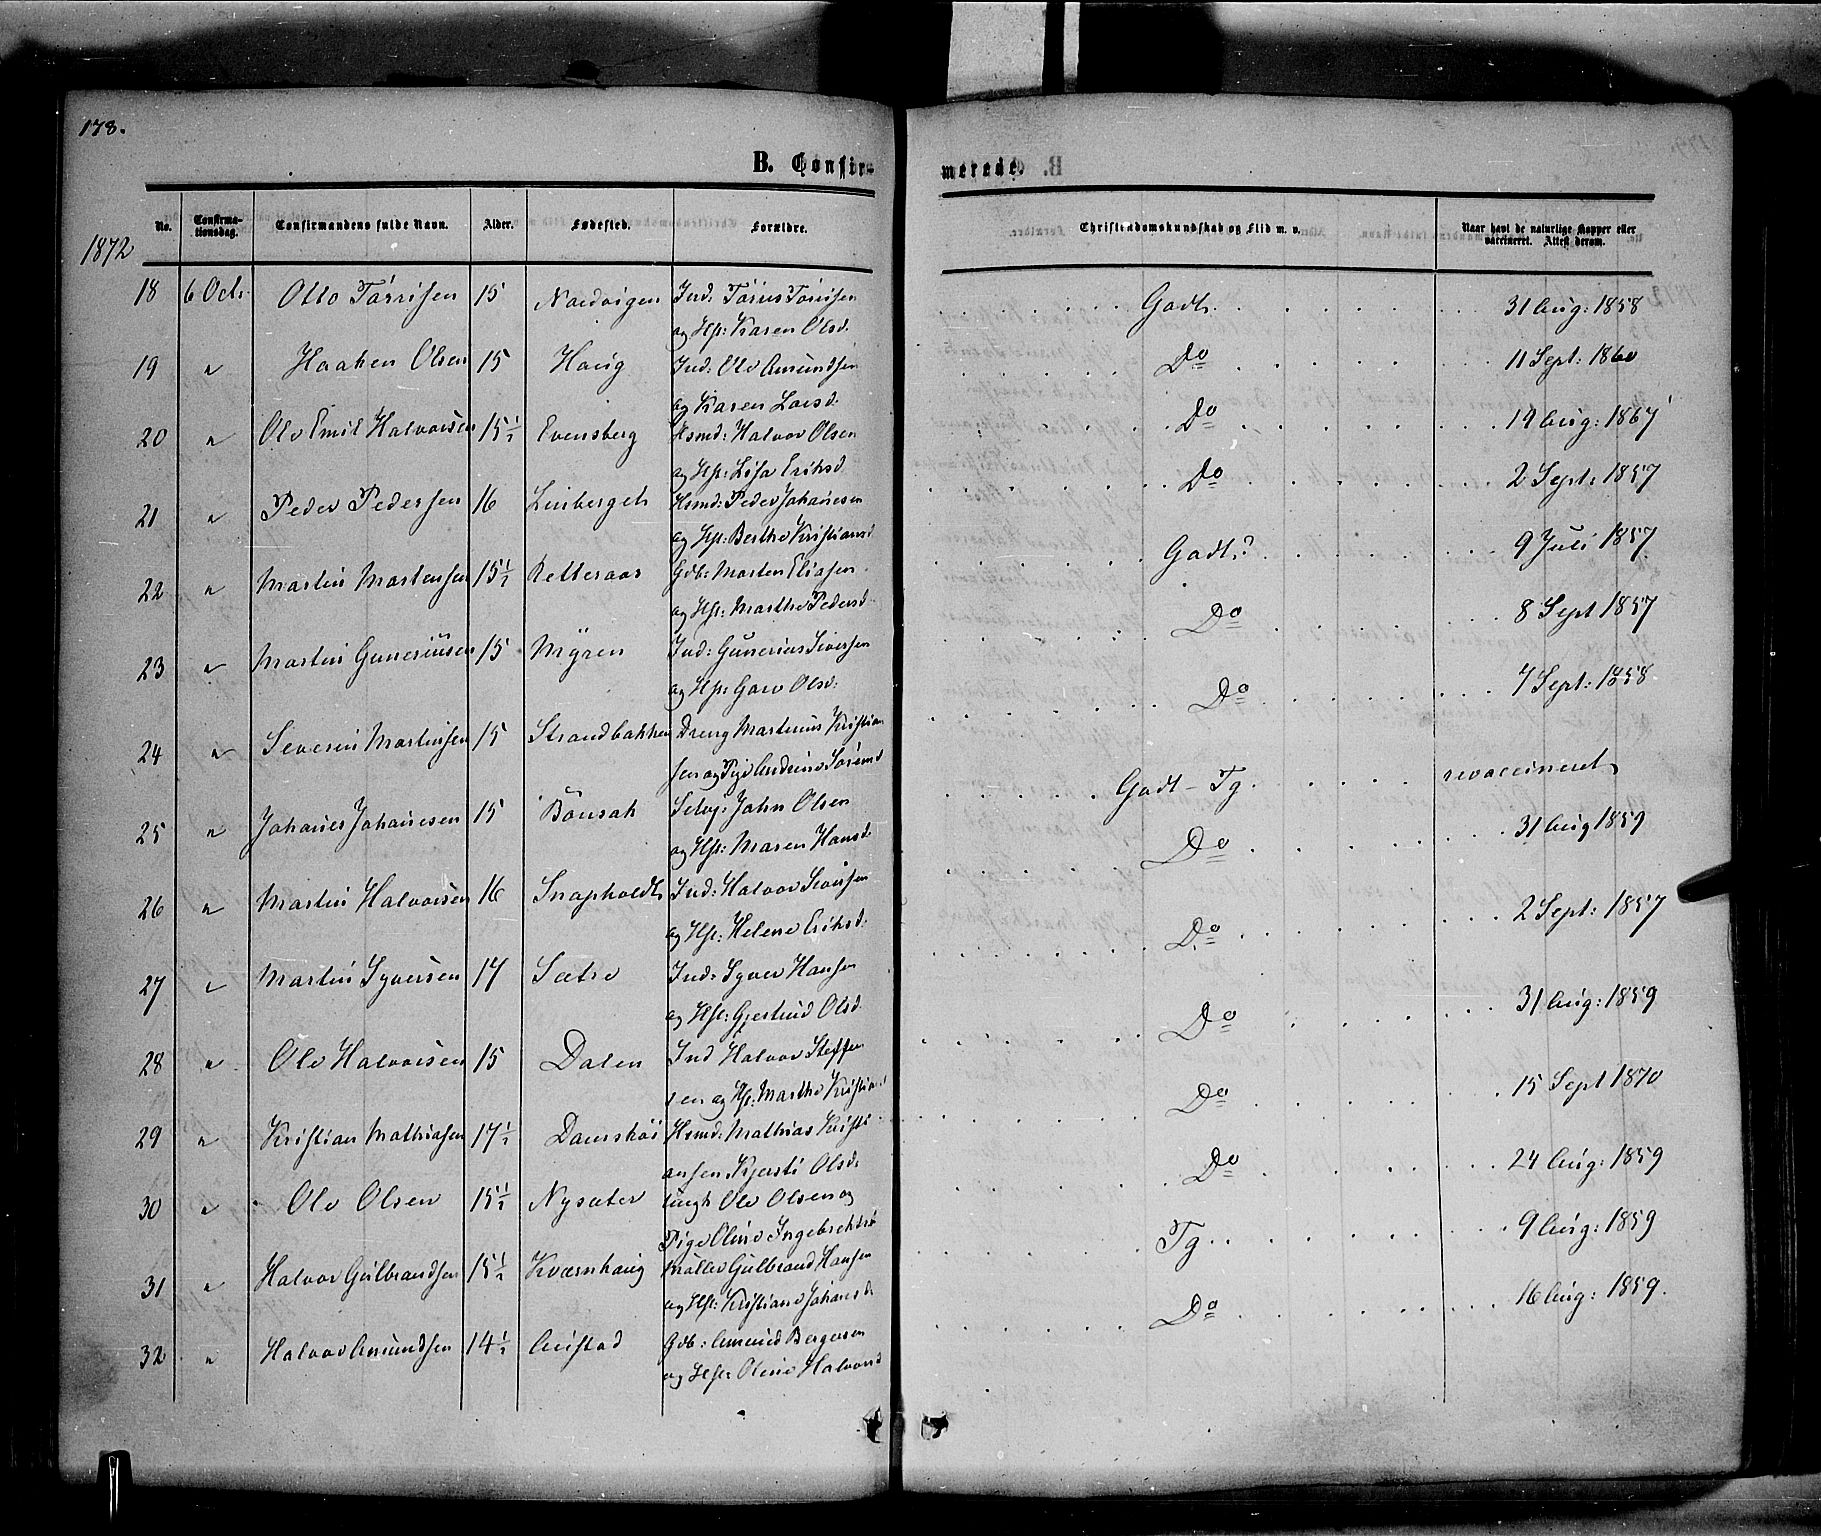 178.
B. Confirmerede.
No. Confirmationsdag. Confirmandens fulde Navn. Alder. Fødested. Forældre. Christendomskundskab og Flid m. v. Naar havt de naturlige Kopper eller vaccineret. Attest derom.
1872
18 6 Oct. Otto Tørrisen 15 Nordvigen Ind: Tørris Tørrisen Godt. 31 Aug: 1858
og Hst: Karen Olsd.
19 " Haaken Olsen 15 Haug Ind: Ole Amundsen Do 11 Sept: 1860
og Karen Larsd.
20 " Ole Emil Halvorsen 15½ Evensberg Hsmd: Halvor Olsen Do 19 Aug: 1867
og Hst: Lisa Eriksd
21 " Peder Pedersen 16 Linberget Hsmd: Peder Johanesen Do 2 Sept: 1857
og Hst: Berthe Kristiansd
22 " Martin Martensen 15½ Retteraas Gdb: Morten Eliasen Godt? 9 Juli 1857
og Hst: Marthe Pedersd.
23 " Martin Guneriusen 15 Myren Ind: Gunerius Siversen Do 8 Sept 1857
og Hst: Goro Olsd:
24 " Severin Martinsen 15 Strandbakken Dreng Martinus Kristian Do 7 Sept: 1858.
sen og Pige Andrine Sørensd
25 " Johanes Johanesen 15 Bönsak Selvej: John Olsen Godt - Tg. revaccineret
og Hst: Maren Hansd
26 " Martin Halvorsen 16 Snapholdt Ind: Halvor Siversen Do 31 Aug 1859
og Hst: Helene Eriksd.
27 " Martin Syversen 17 Sætre Ind: Syver Hansen Do 2 Sept: 1857
og Hst: Gjertrud Olsd
28 " Ole Halvorsen 15 Dalen Ind Halvor Steffen Do 31 Aug: 1859
sen og Hst: Marthe Kristian
29 " Kristian Mathiasen 17½ Damskôi Hsmd: Mathias Kristi Do 15 Sept 1870
ansen Kjersti Olsd.
30 " Ole Olsen 15½ Nysæter Ungk Ole Olsen og Do 24 Aug: 1859
Pige Oline Ingebrektsd
31 " Halvor Gulbrandsen 15½ Kværnhaug Møller Gulbrand Hansen Tg. 9 Aug: 1859
og Hst: Kristiane Johansd.
32 " Halvor Amundsen 14½ Austad Gdb: Amund Bergersen Do 16 Aug: 1859.
og Hst: Oline Halvorsd